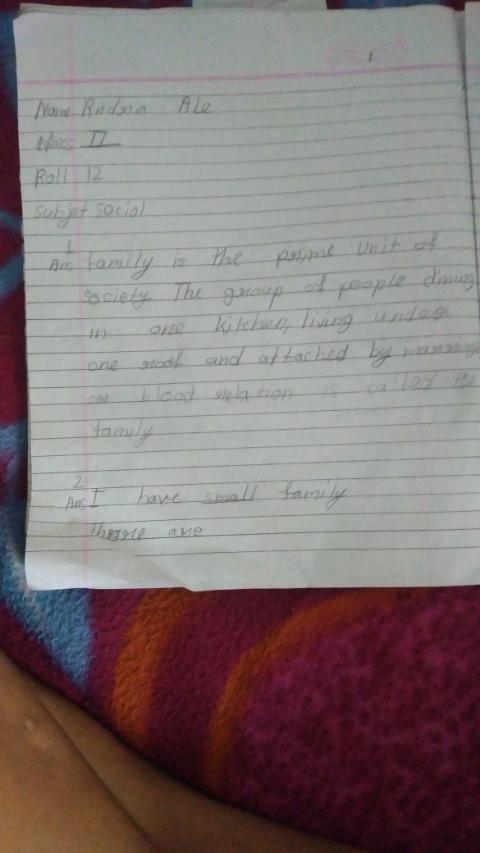 1
Name Rudra Ale
Class II
Roll 12
Subjet Social
1
Ans family is the prime unit of
society The group of people dining
in one kitchen, living under
one roof and attached by
or blood relation is called
family
2
Ans I have small family
There are